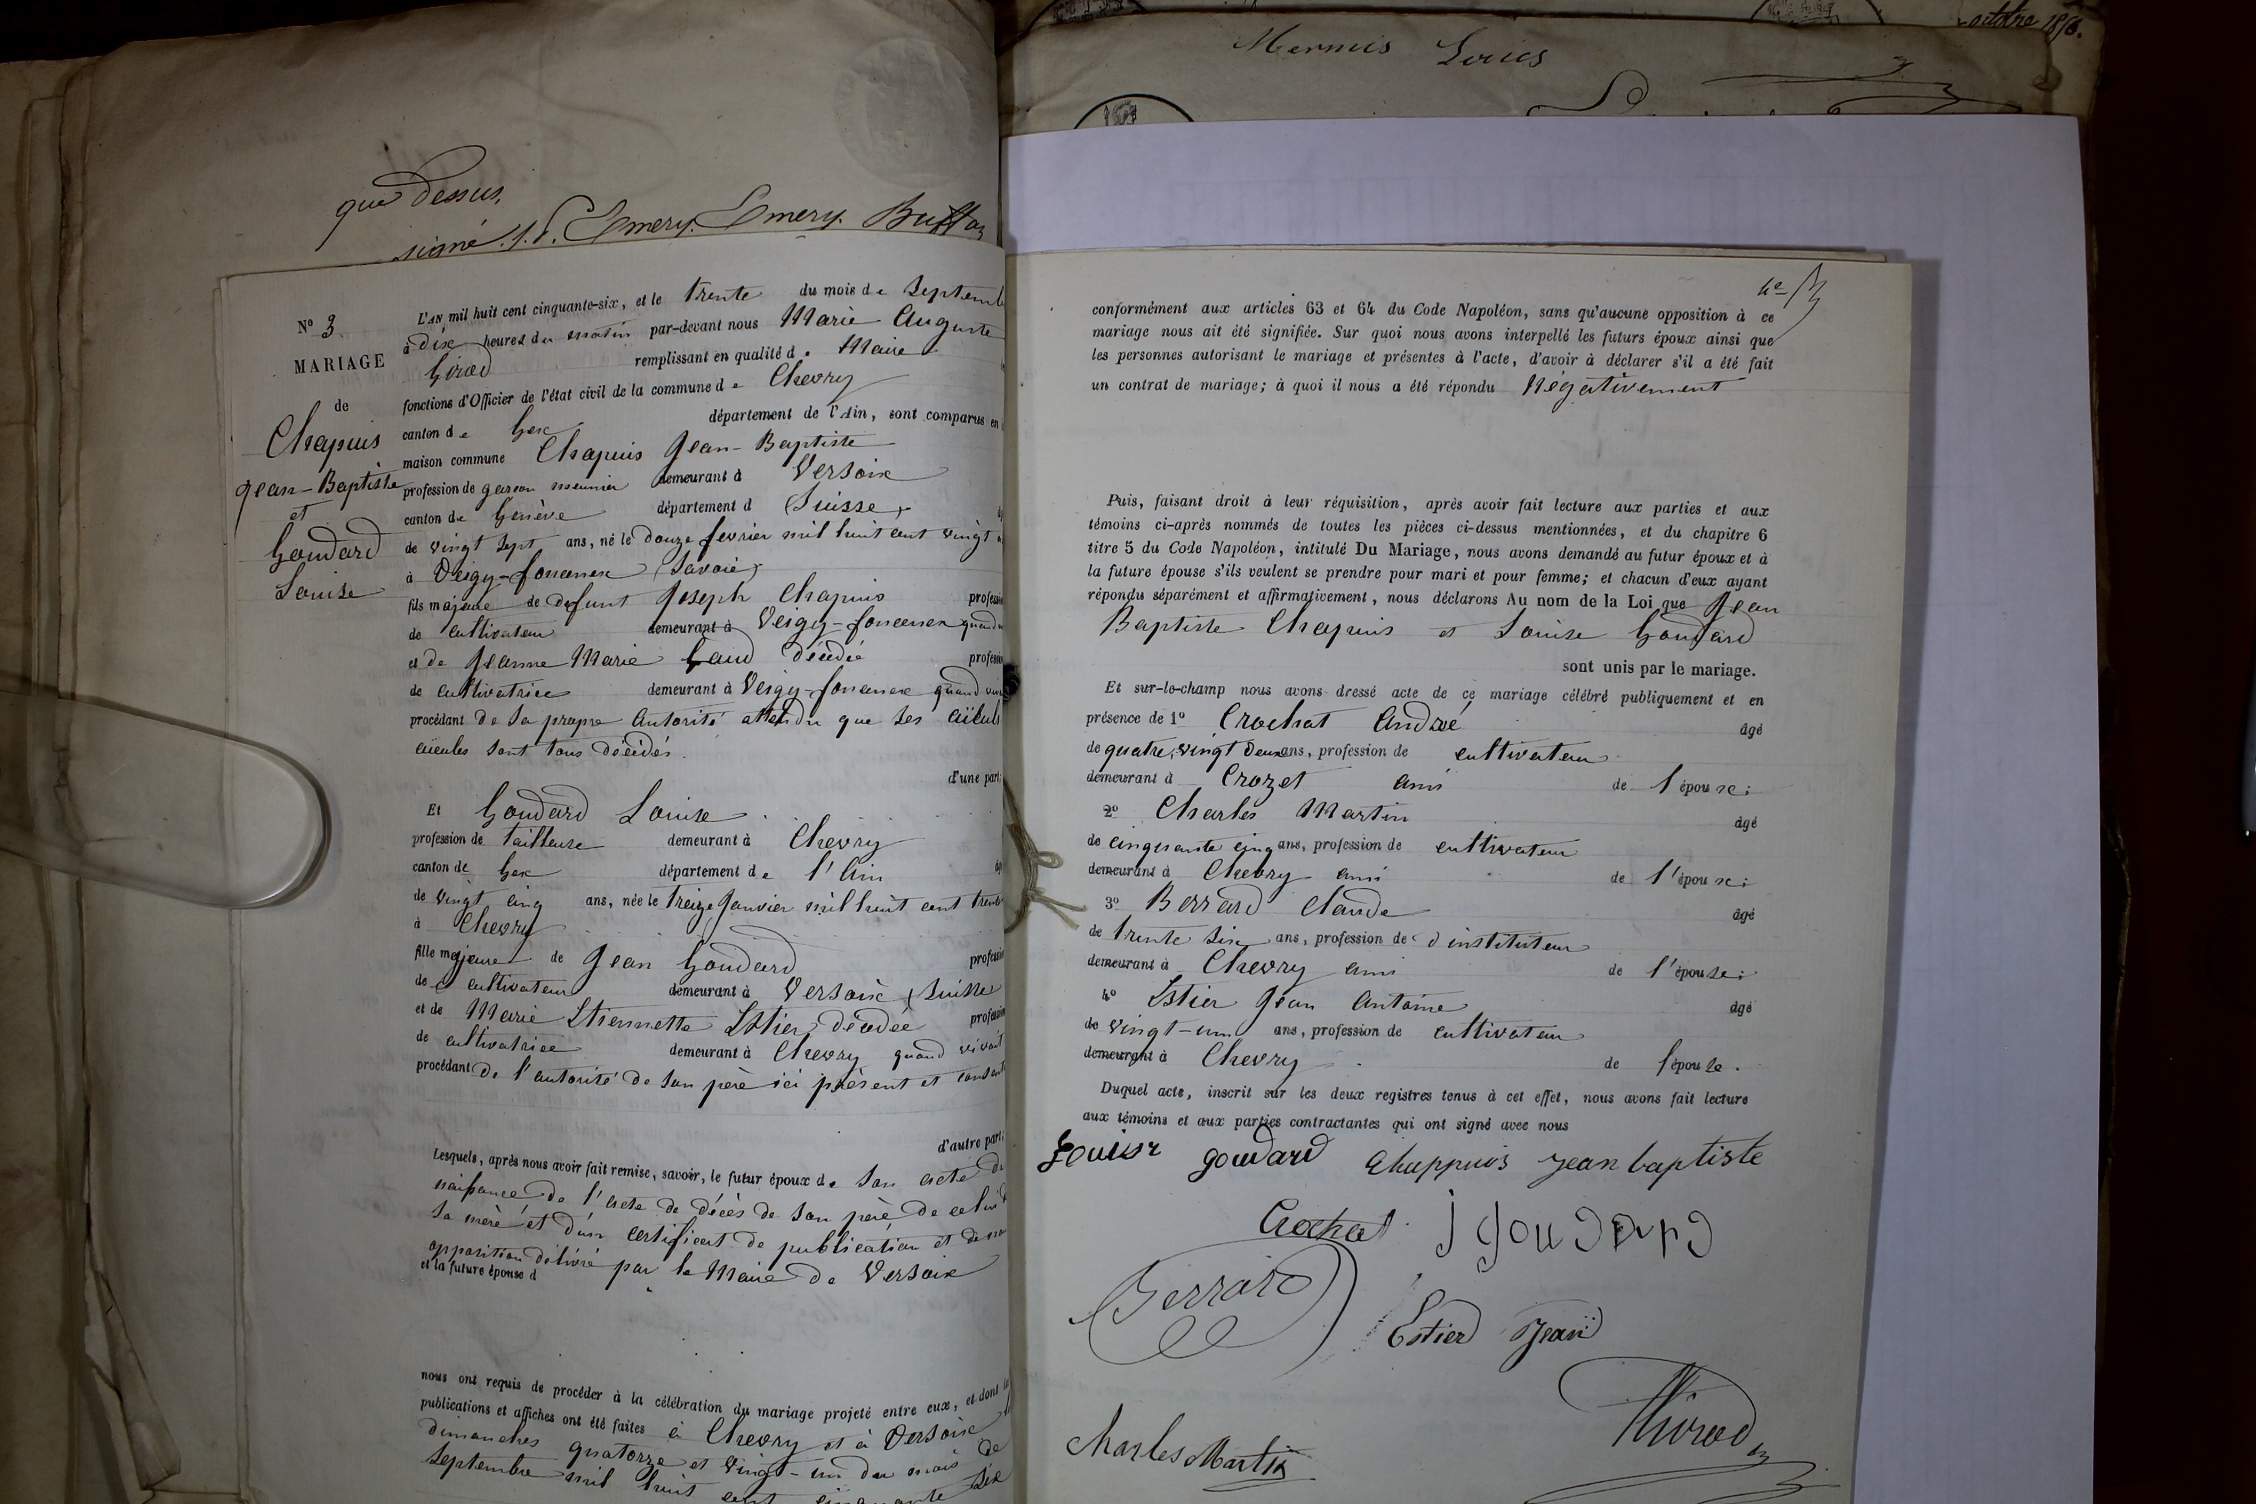 octobre 1856.
Mermis Louis
que dessus.
signé. J. P. Emery. Emery. Buffaz
N° 3
MARIAGE
de
Chapuis
Jean-Baptiste
et
Goudard
Louise
L'AN mil huit cent cinquante-six, et le trente du mois de Septemb
à dix heures du matin par-devant nous Marie Auguste
Girod remplissant en qualité de Maire
fonctions d'Officier de l'état civil de la commune de Chevry
canton de Gex département de l'Ain, sont comparus en
maison commune Chapuis Jean-Baptiste
profession de garçon meunier demeurant à Versoix
canton de Genève département d Suisse,
de vingt sept ans, né le douze fevrier mil huit cent vingt
à Veigy-foncenex (Savoie)
fils majeur de defunt Joseph Chapuis profession
de cultivateur demeurant à Veigy-foncenex quand
et de Jeanne Marie Laud décédée profession
de cultivatrice demeurant à Veigy-foncenex quand
procédant de sa propre autorité attendu que ses aïeuls
aïeules sont tous décédés.
d'une part;
Et Goudard Louise
profession de tailleuse demeurant à Chevry
canton de Gex département de l'Ain
de vingt cinq ans, née le treize Janvier mil huit cent trente
à Chevry
fille majeure de Jean Goudard profession
de cultivateur demeurant à Versoix (Suisse
et de Marie Etiennette Estier décédée profession
de cultivatrice demeurant à Chevry quand vivait
procédant de l'autorité de son père ici présent et consent
d'autre part;
Lesquels, après nous avoir fait remise, savoir, le futur époux de son acte de
naissance de l'acte de décès de son père de celui de
sa mère et d'un certificat de publication et de non
opposition délivré par le Maire de Versoix
et la future épouse d
nous ont requis de procéder à la célébration du mariage projeté entre eux, et dont les
publications et affiches ont été faites à Chevry et à Versoix
dimanches quatorze et vingt-un du mois de
septembre mil huit cent cinquante six
4e
conformément aux articles 63 et 64 du Code Napoléon, sans qu'aucune opposition à ce
mariage nous ait été signifiée. Sur quoi nous avons interpellé les futurs époux ainsi que
les personnes autorisant le mariage et présentes à l'acte, d'avoir à déclarer s'il a été fait
un contrat de mariage; à quoi il nous a été répondu Négativement
Puis, faisant droit à leur réquisition, après avoir fait lecture aux parties et aux
témoins ci-après nommés de toutes les pièces ci-dessus mentionnées, et du chapitre 6
titre 5 du Code Napoléon, intitulé Du Mariage, nous avons demandé au futur époux et à
la future épouse s'ils veulent se prendre pour mari et pour femme; et chacun d'eux ayant
répondu séparément et affirmativement, nous déclarons Au nom de la Loi que Jean
Baptiste Chapuis et Louise Goudard
sont unis par le mariage.
Et sur-le-champ nous avons dressé acte de ce mariage célébré publiquement et en
présence de 1° Crochat André âgé
de quatre vingt deux ans, profession de cultivateur
demeurant à Crozet ami de l'épouse;
2° Charles Martin âgé
de cinquante cinq ans, profession de cultivateur
demeurant à Chevry ami de l'épouse;
3° Berrard Claude âgé
de trente six ans, profession de d'instituteur
demeurant à Chevry ami de l'épouse;
4° Estier Jean Antoine âgé
de vingt-un ans, profession de cultivateur
demeurant à Chevry de l'épouse.
Duquel acte, inscrit sur les deux registres tenus à cet effet, nous avons fait lecture
aux témoins et aux parties contractantes qui ont signé avec nous
Louise goudard Chappuis jean baptiste
Crochat j goudard
Berrard
Estier Jean
Girod
Charles Martin